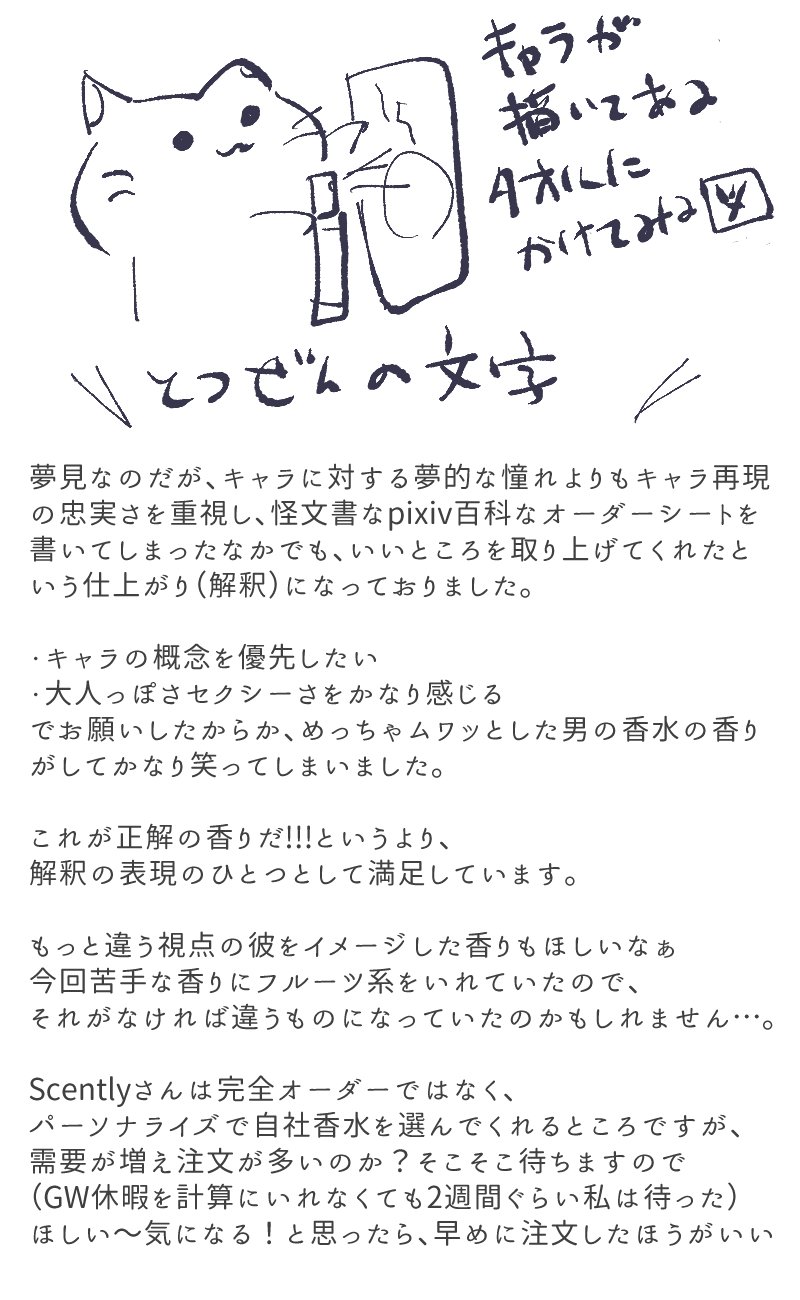 キャラが
描いてある
タオルに
かけてみる図
とつぜんの文字
夢見なのだが、キャラに対する夢的な憧れよりもキャラ再現
の忠実さを重視し、怪文書なpixiv百科なオーダーシートを
書いてしまったなかでも、いいところを取り上げてくれたと
いう仕上がり(解釈)になっておりました。
・キャラの概念を優先したい
・大人っぽさセクシーさをかなり感じる
でお願いしたからか、めっちゃムワッとした男の香水の香り
がしてかなり笑ってしまいました。
これが正解の香りだ!!!というより、
解釈の表現のひとつとして満足しています。
もっと違う視点の彼をイメージした香りもほしいなぁ
今回苦手な香りにフルーツ系をいれていたので、
それがなければ違うものになっていたのかもしれません…。
Scentlyさんは完全オーダーではなく、
パーソナライズで自社香水を選んでくれるところですが、
需要が増え注文が多いのか？そこそこ待ちますので
(GW休暇を計算にいれなくても2週間ぐらい私は待った)
ほしい～気になる！と思ったら、早めに注文したほうがいい